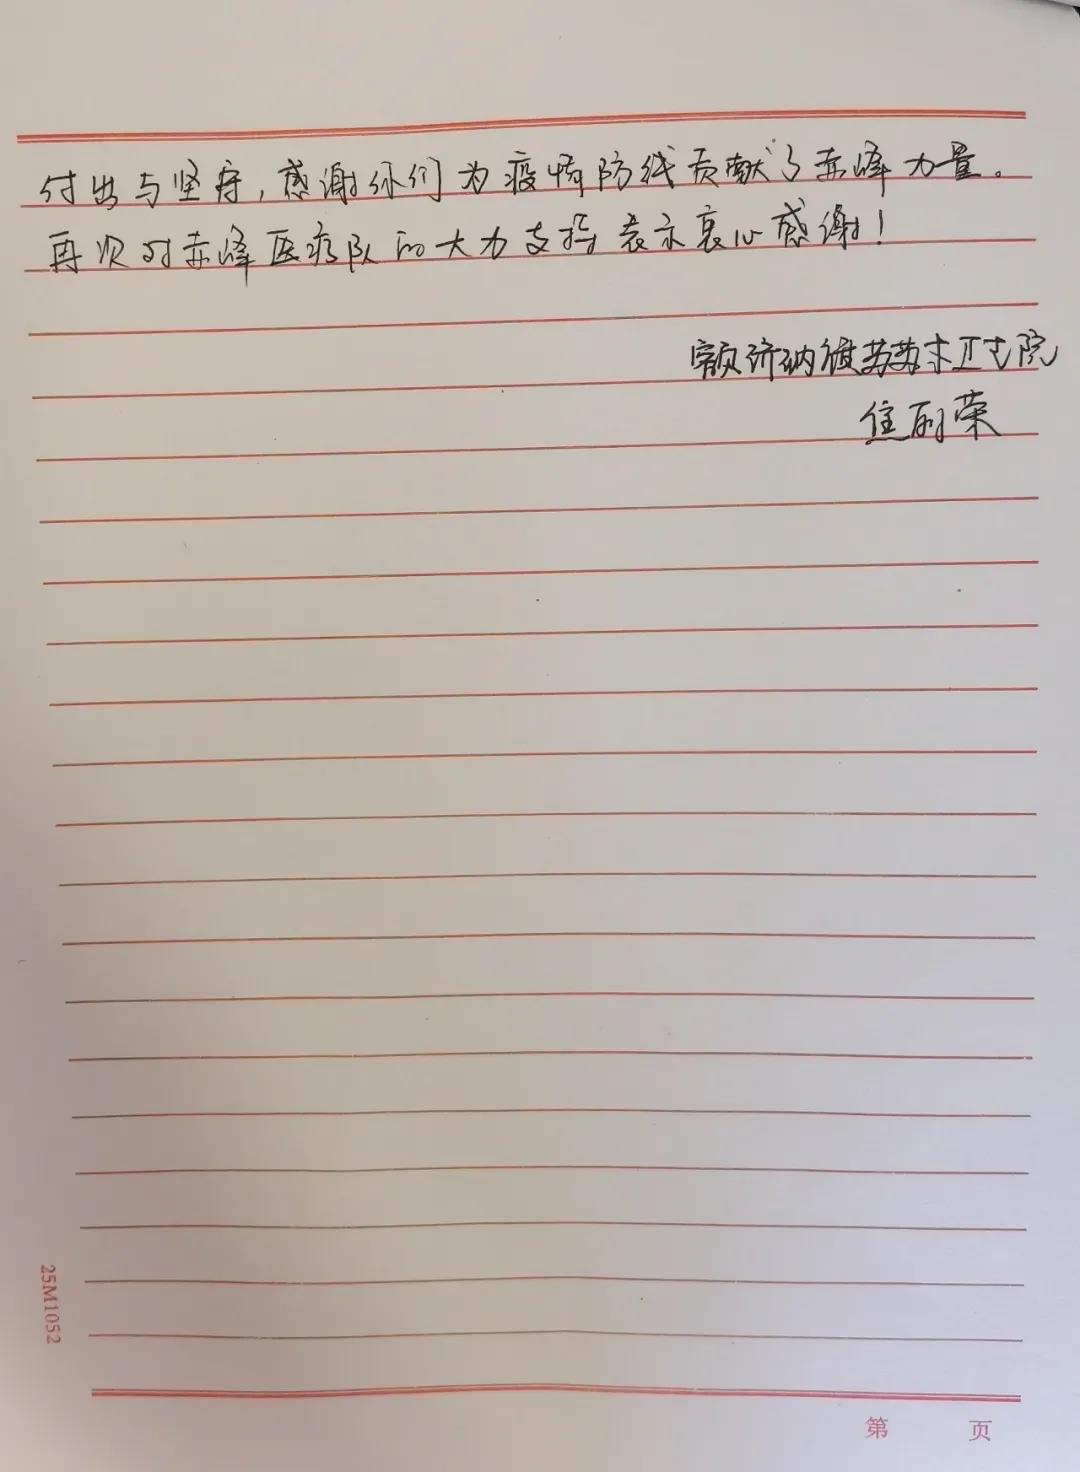 付出与坚守，感谢你们为疫情防线贡献了赤峰力量。
再次对赤峰医疗队的大力支持表示衷心感谢！
额济纳旗苏苏木卫生院
焦丽荣
25M1052
第 页